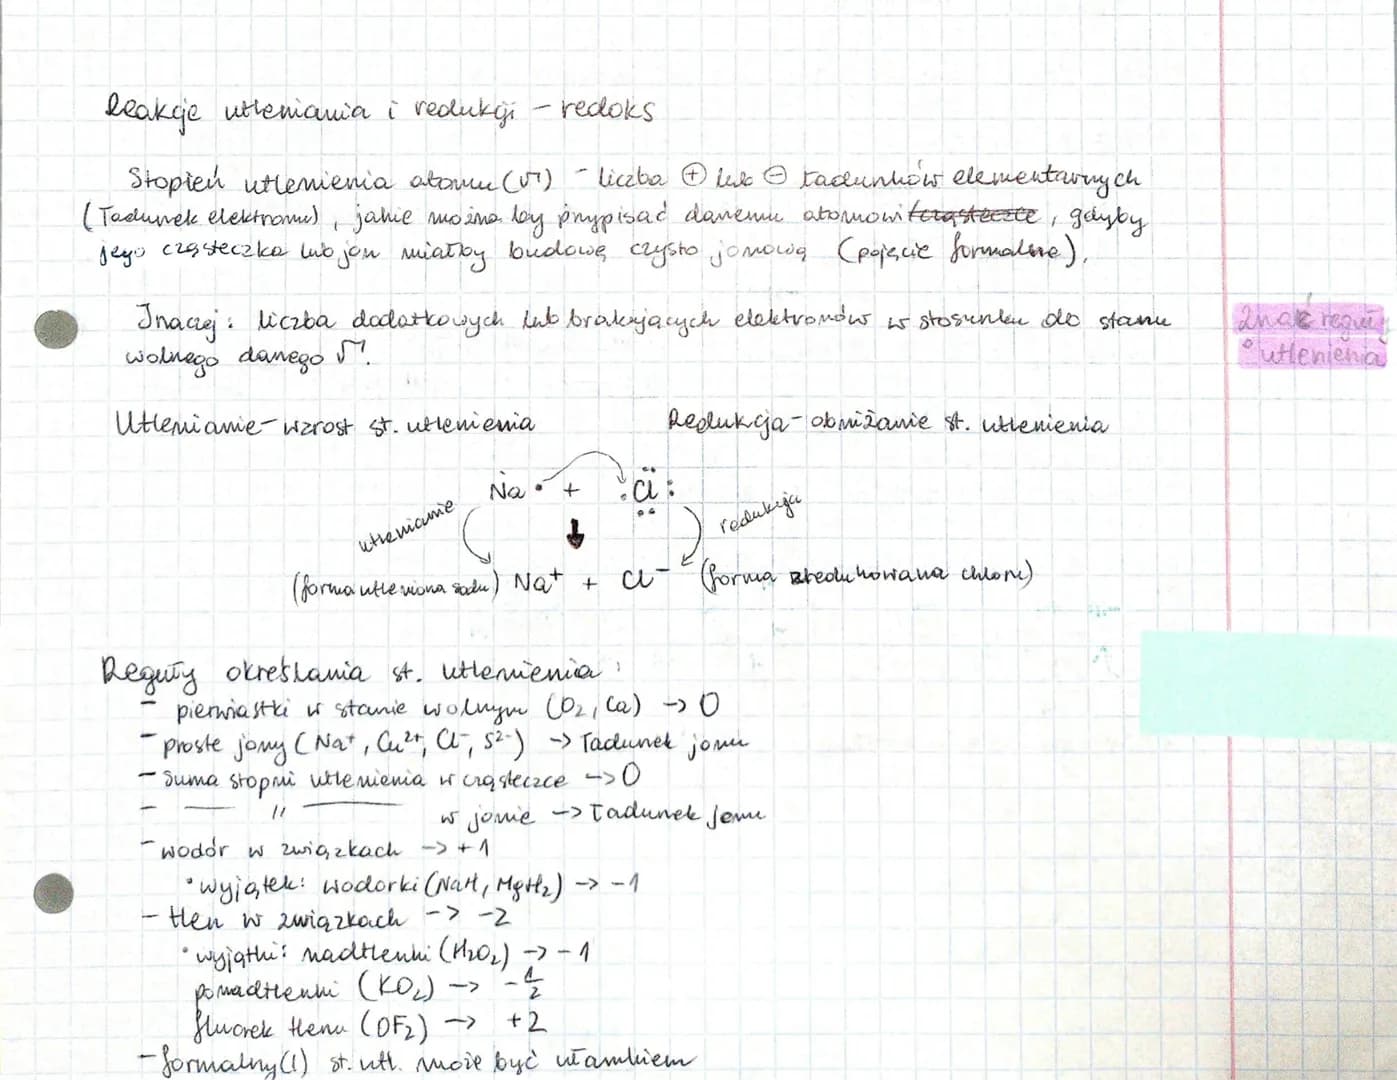 Reakcje utleniania i redukcji – redoks
Stopień utlenienia atomu ( ) - liczba ⊕ lub ⊖ ładunków elementarnych
(ładunek elektronu), jakie można by przypisać danemu atomowi cząsteczce, gdyby
jego cząsteczka lub jon miałby budowę czysto jonową (pojęcie formalne).
Inaczej: liczba dodatkowych lub brakujących elektronów w stosunku do stanu
wolnego danego
Znać reguły
utlenienia
Utlenianie - wzrost st. utlenienia
Redukcja - obniżanie st. utlenienia
Na• + :Cl:
utlenianie
redukcja
(forma utleniona sodu) Na⁺ + Cl⁻ (forma zredukowana chloru)
Reguły określania st. utlenienia:
- pierwiastki w stanie wolnym (O₂, Ca) -> 0
- proste jony (Na⁺, Cu²⁺, Cl⁻, S²⁻) -> ładunek jonu
- suma stopni utlenienia w cząsteczce -> 0
- —— // —— w jonie -> ładunek jonu
- wodór w związkach -> +1
• wyjątek: wodorki (NaH, MgH₂) -> -1
- tlen w związkach -> -2
• wyjątki: nadtlenki (H₂O₂) -> -1
ponadtlenki (KO₂) -> -½
fluorek tlenu (OF₂) -> +2
- formalny (!) st. utl. może być ułamkiem